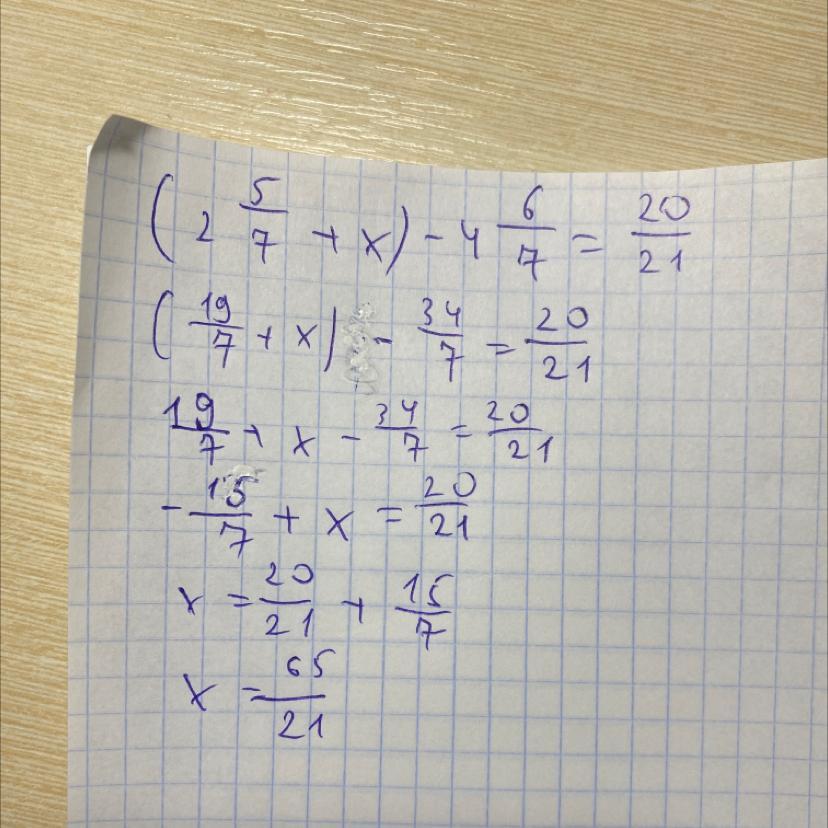 (2 5/7 + x) - 4 6/7 = 20/21
(19/7 + x) - 34/7 = 20/21
19/7 + x - 34/7 = 20/21
- 15/7 + x = 20/21
x = 20/21 + 15/7
x = 65/21